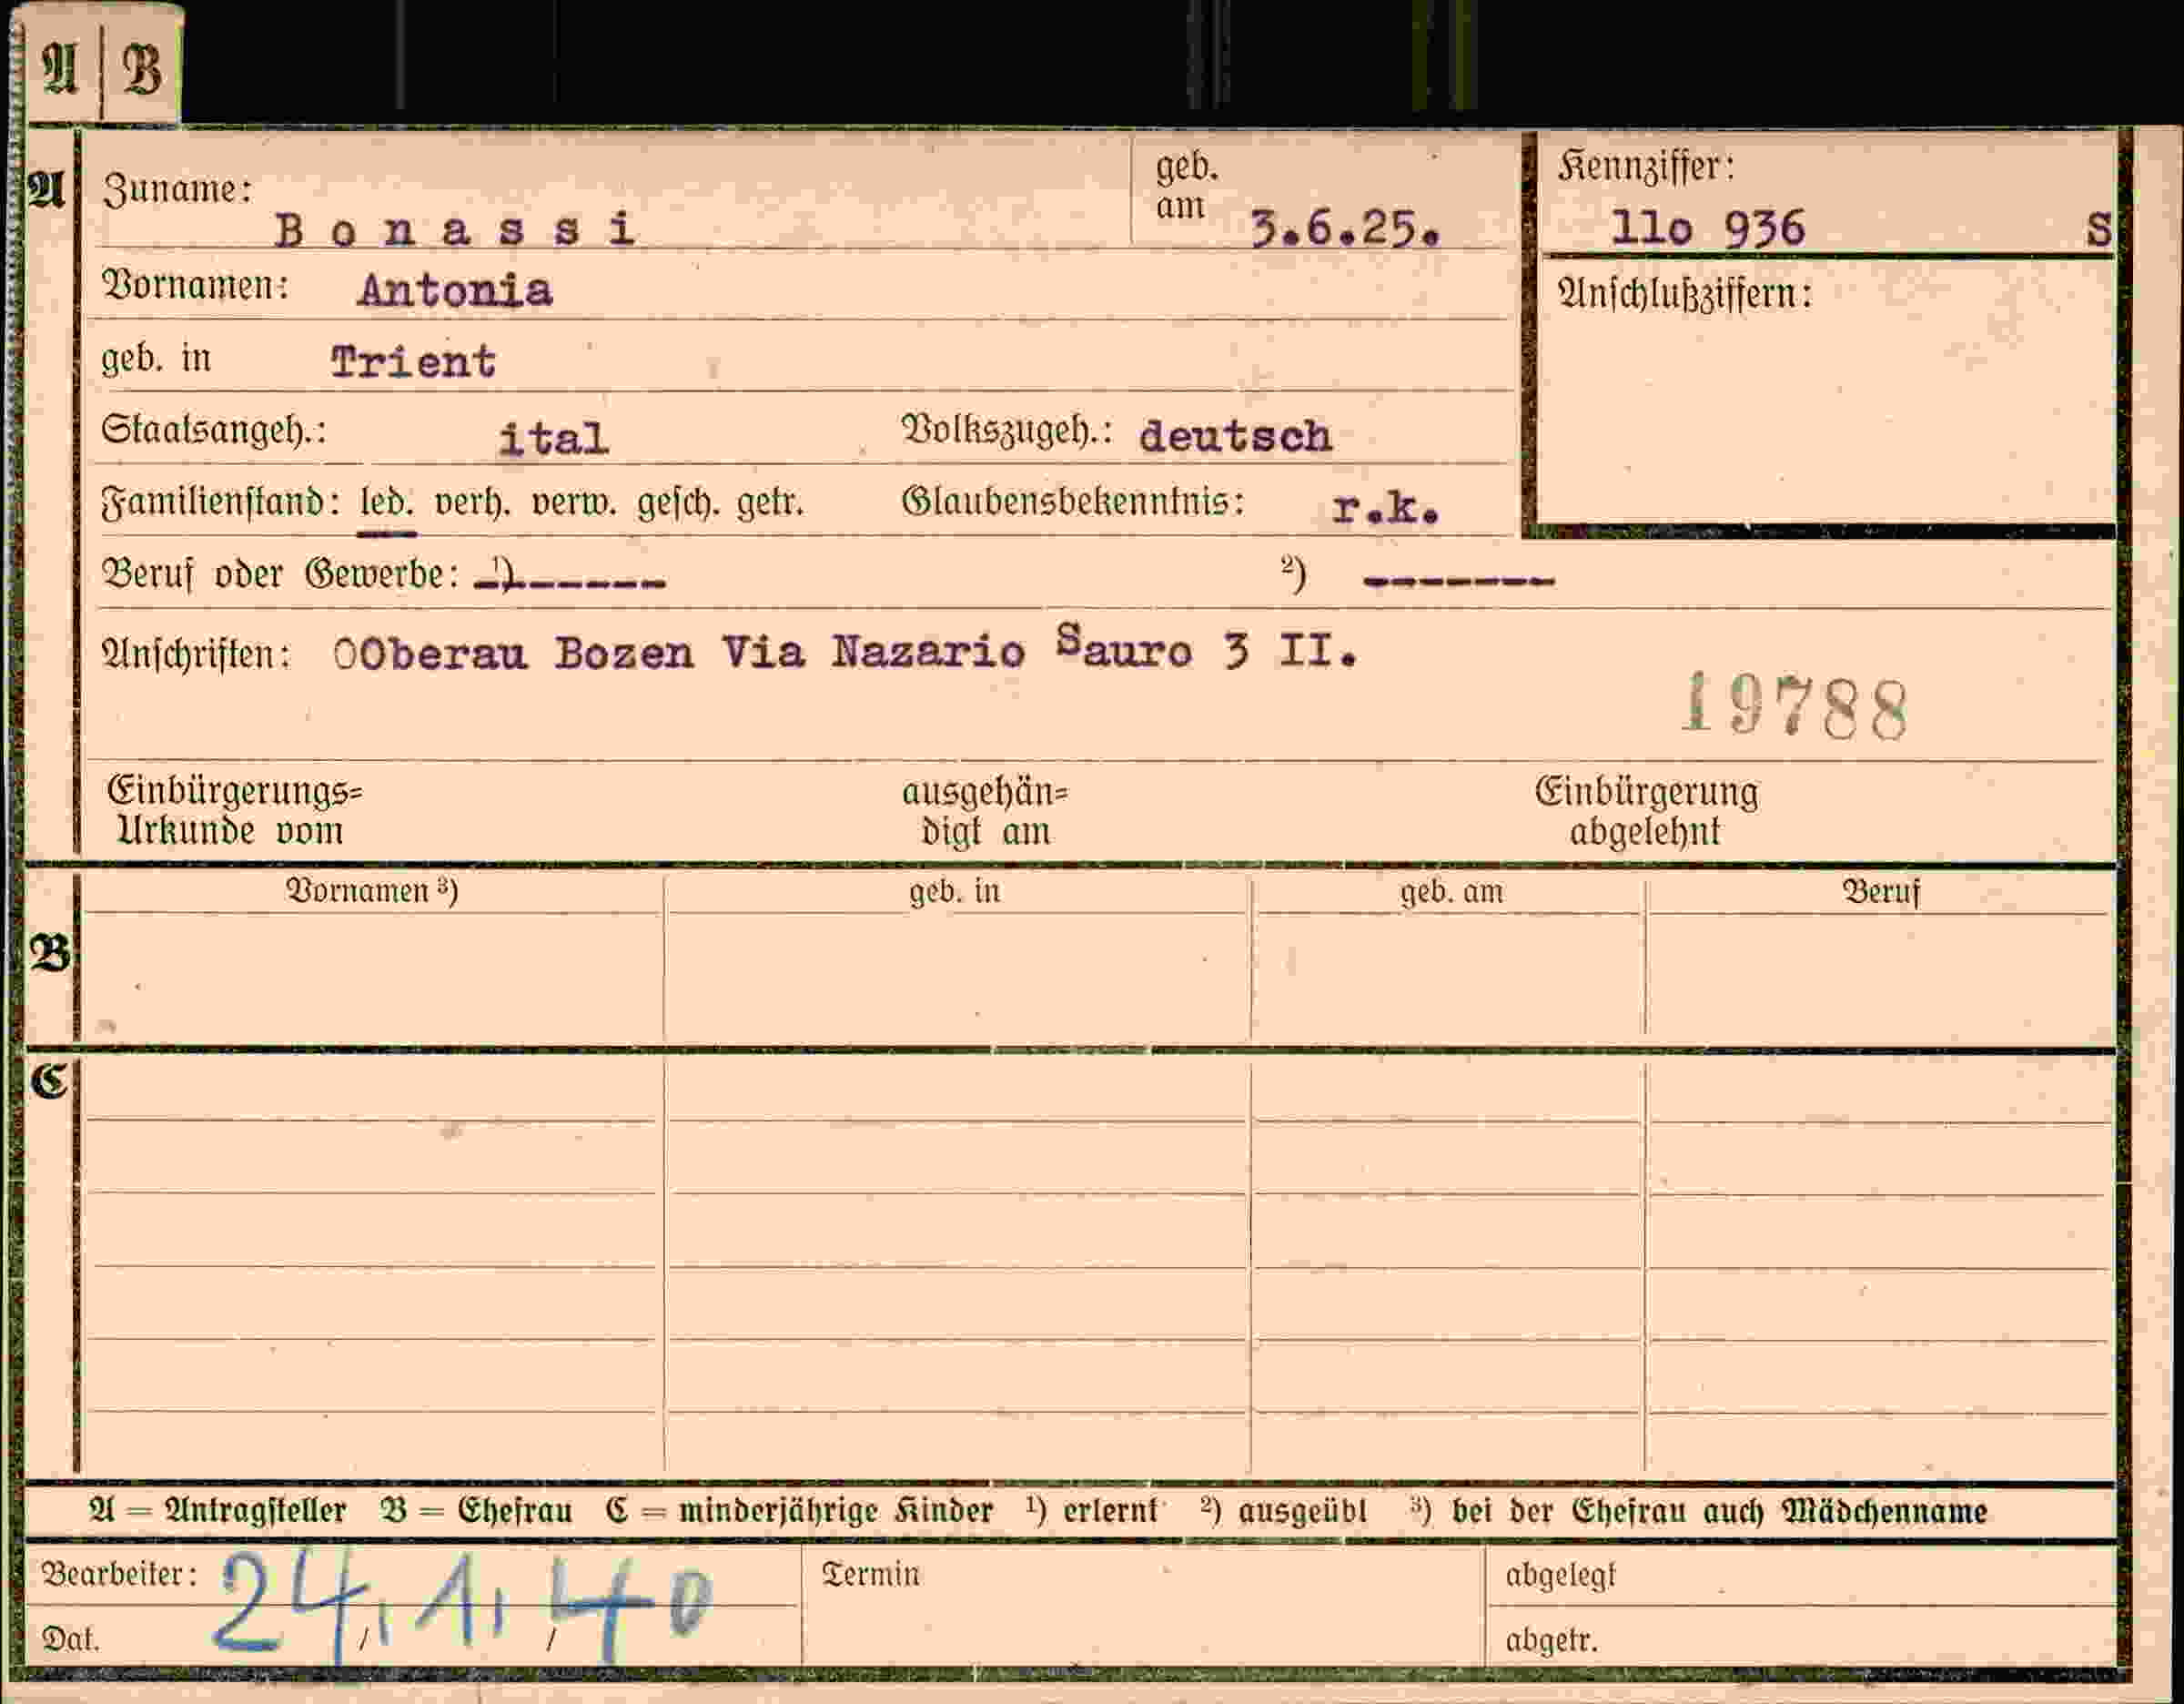 A B
A
Zuname: Bonassi
geb. am 3.6.25.
Kennziffer:
11o 936 S
Vornamen: Antonia
Anschlußziffern:
geb. in Trient
Staatsangeh.: ital Volkszugeh.: deutsch
Familienstand: led. verh. verw. gesch. getr. Glaubensbekenntnis: r.k.
Beruf oder Gewerbe: ¹)------ ²) -------
Anschriften: OOberau Bozen Via Nazario Sauro 3 II.
19788
Einbürgerungs= ausgehän= Einbürgerung
Urkunde vom digt am abgelehnt
Vornamen ³) geb. in geb. am Beruf
B
C
A = Antragsteller B = Ehefrau C = minderjährige Kinder ¹) erlernt ²) ausgeübt ³) bei der Ehefrau auch Mädchenname
Bearbeiter: 24.1.40 Termin abgelegt
Dat. / / abgetr.